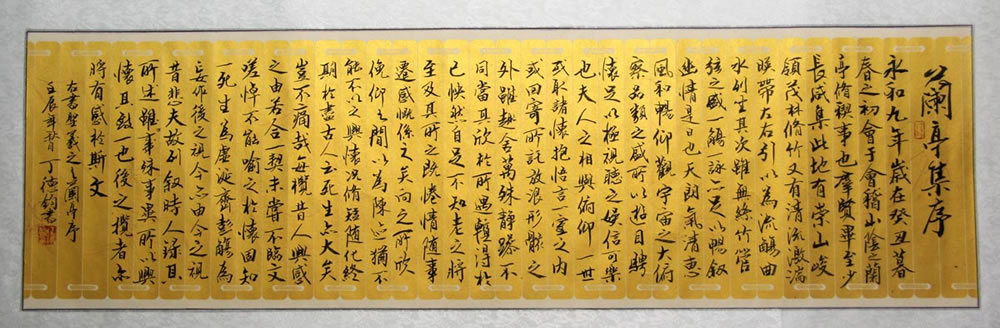 蘭亭集序
永和九年歲在癸丑暮
春之初會于會稽山陰之蘭
亭脩稧事也羣賢畢至少
長咸集此地有崇山峻
領茂林脩竹又有清流激湍
暎帶左右引以為流觴曲
水列坐其次雖無絲竹管
弦之盛一觴一詠亦足以暢敘
幽情是日也天朗氣清惠
風和暢仰觀宇宙之大俯
察品類之盛所以遊目騁
懷足以極視聽之娛信可樂
也夫人之相與俯仰一世
或取諸懷抱悟言一室之內
或因寄所託放浪形骸之
外雖趣舍萬殊靜躁不
同當其欣於所遇輒得於
己怏然自足不知老之將
至及其所之既惓情隨事
遷感慨係之矣向之所欣
俛仰之間以為陳迹猶不
能不以之興懷況脩短隨化終
期於盡古人云死生亦大矣
豈不痛哉每攬昔人興感
之由若合一契未嘗不臨文
嗟悼不能喻之於懷固知
一死生為虛誕齊彭殤為
妄作後之視今亦由今之視
昔悲夫故列敘時人錄其
所述雖事殊事異所以興
懷其致一也後之攬者亦
將有感於斯文
右書聖羲之蘭亭序
壬辰年 丁德 書